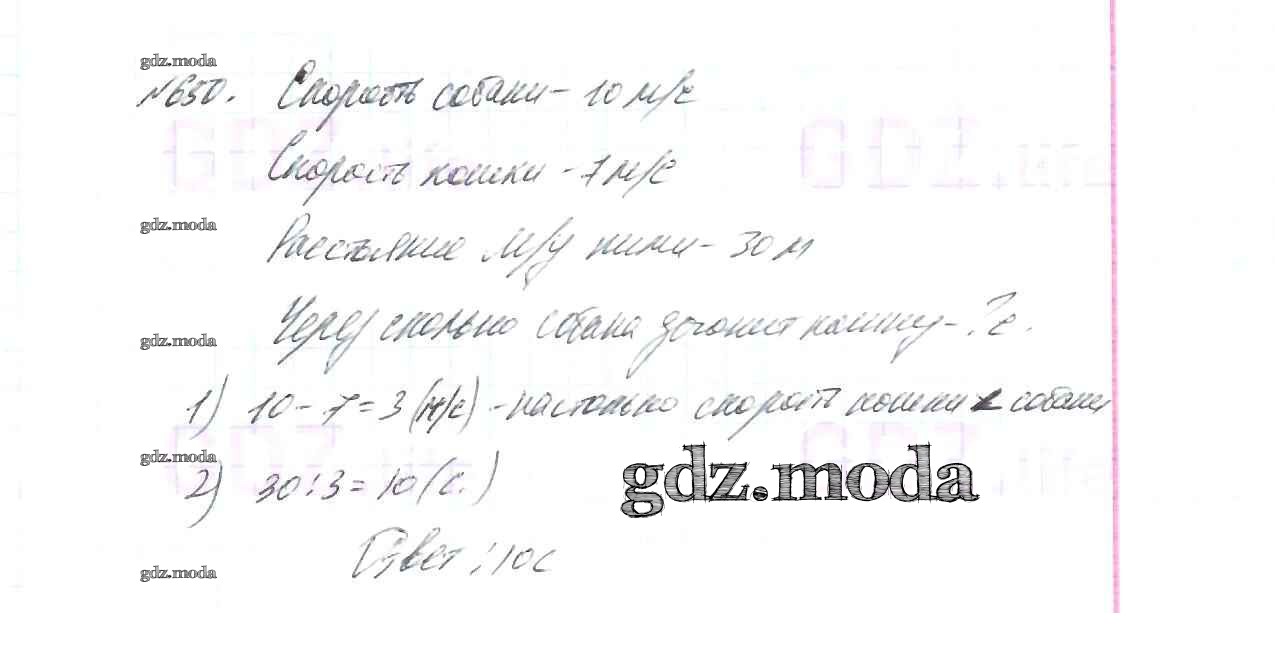 gdz.moda
№650. Скорость собаки - 10 м/с
Скорость кошки - 7 м/с
gdz.moda
Расстояние м/у ними - 30 м
Через сколько собака догонит кошку - ? с.
gdz.moda
1) 10 - 7 = 3 (м/с) - настолько скорость кошки < собаки
gdz.moda
gdz.moda
2) 30 : 3 = 10 (с.)
Ответ : 10 с
gdz.moda